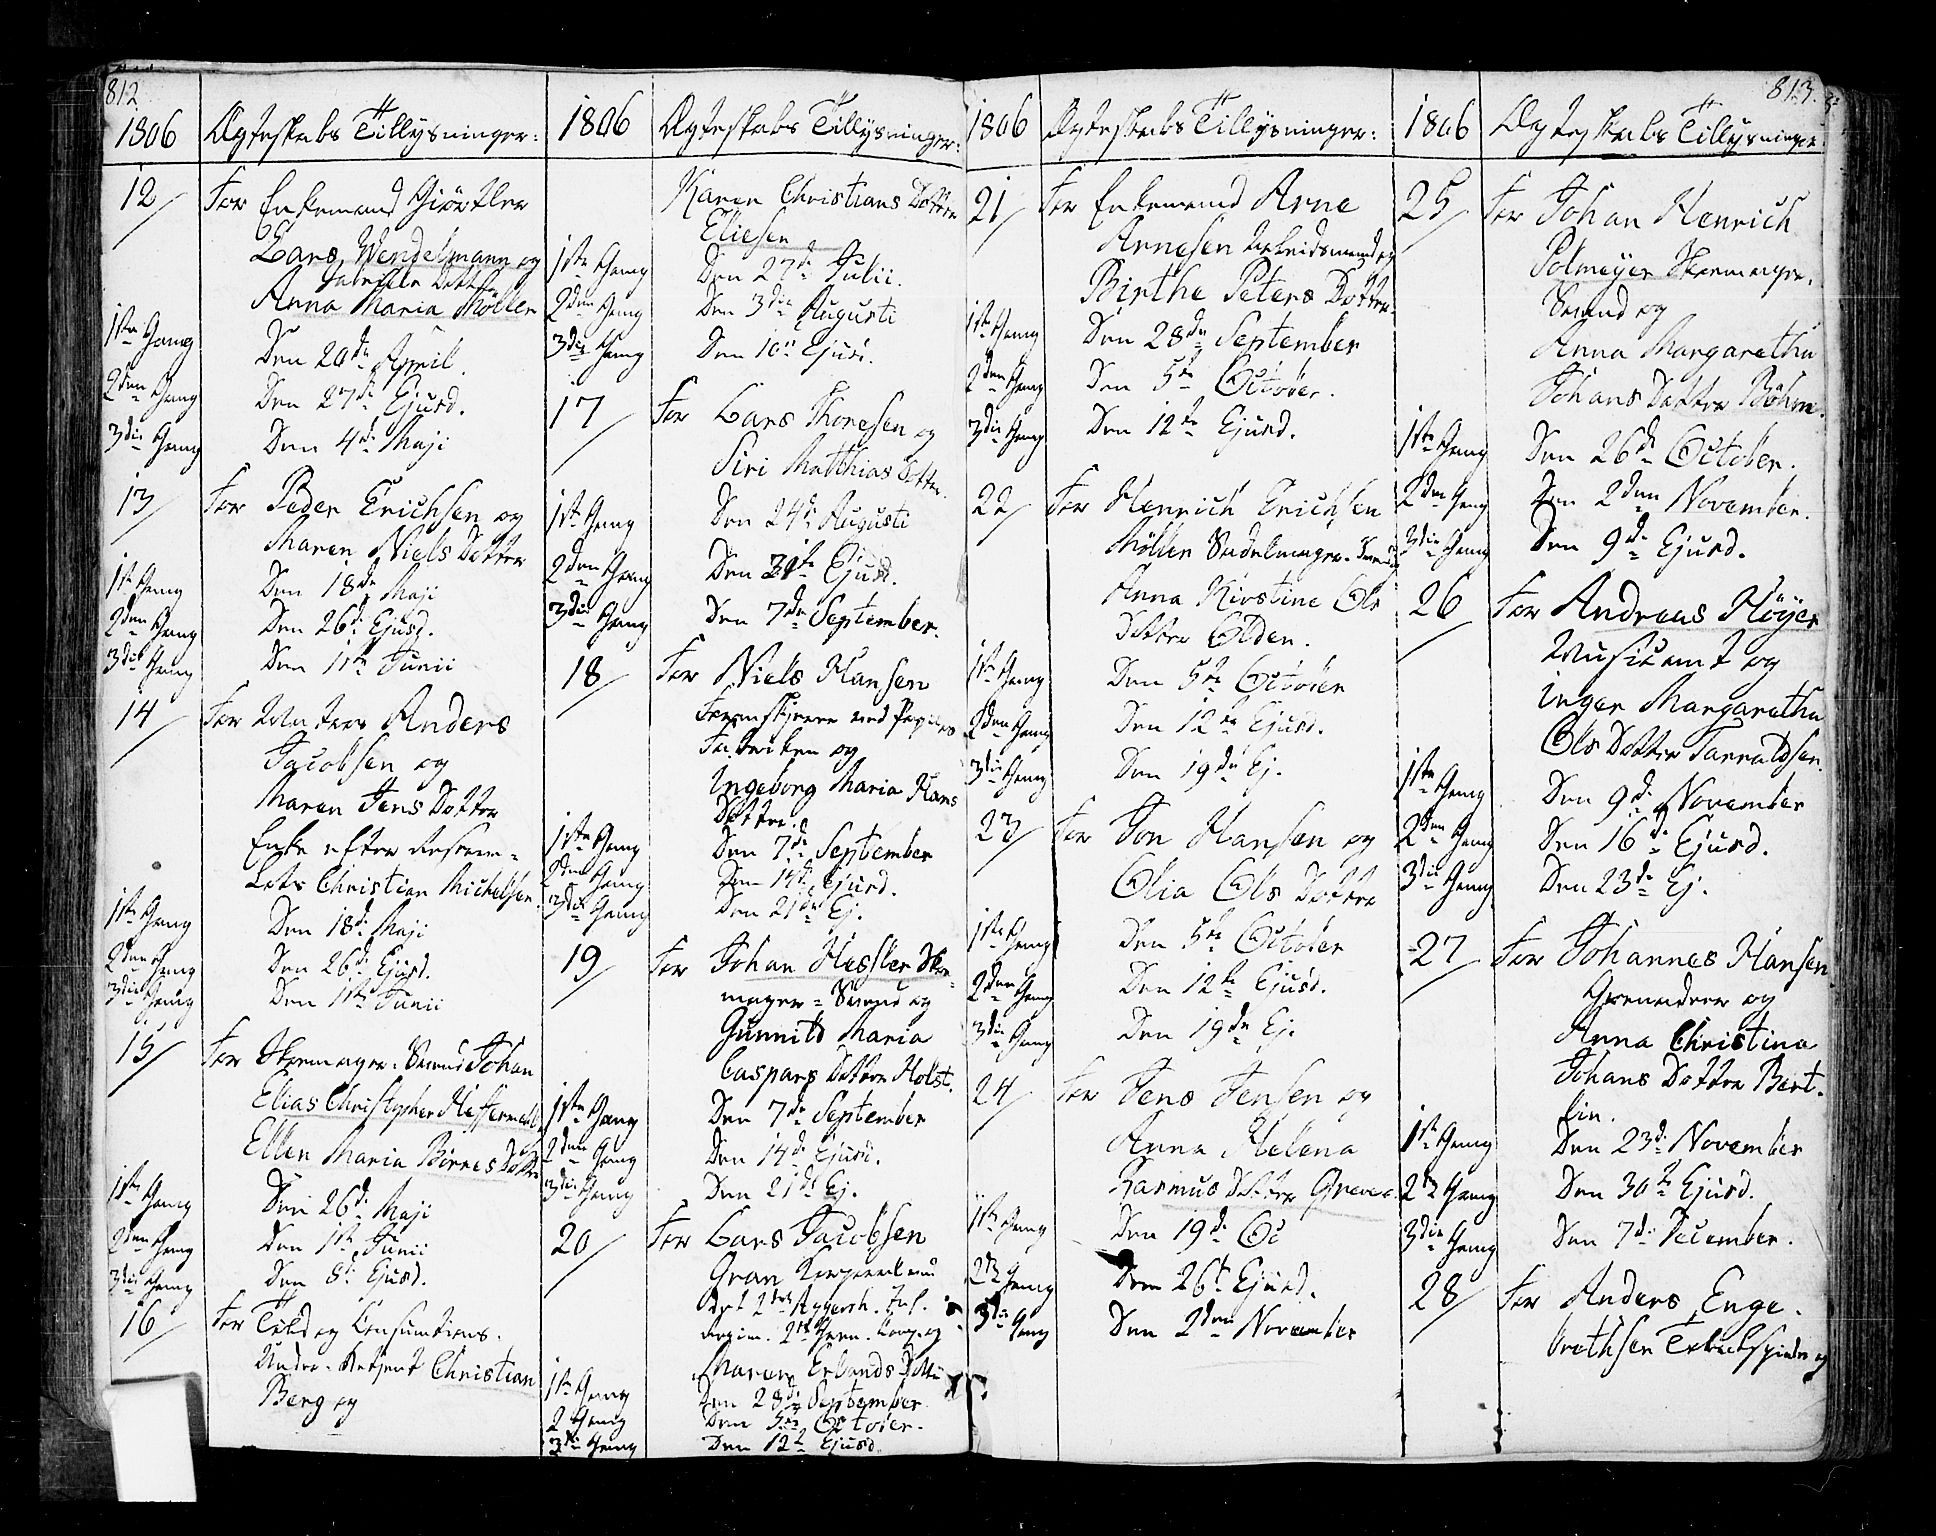 812
1806 Ægteskabs Tillysninger:
12 For Enkemand Giörtler
Lars Wendelmann og
Gabriels Dotter
Anna Maria Möller
1ste Gang Den 20de April.
2den Gang Den 27de Ejusd.
3die Gang Den 4de Maji
13 For Peder Erichsen og
Maren Niels Dotter
1ste Gang Den 18de Maji
2den Gang Den 26de Ejusd.
3die Gang Den 1ste Junii
14 For Anders
Jacobsen og
Maren Jens Dotter
Enke efter
Christian Michelsen.
1ste Gang Den 18de Maji
2den Gang Den 26de Ejusd.
3die Gang Den 1ste Junii
15 For Skomager-Svend Johan
Elias Christopher og
Ellen Maria Börres Dotter
1ste Gang Den 26de Maji
2den Gang Den 1ste Junii
3die Gang Den 8de Ejusd.
16 For Told og Consumtions-
Under- Christian
Berg og
1806 Ægteskabs Tillysninger:
Karen Christians Dotter
Eliesen
1ste Gang Den 27de Julii.
2den Gang Den 3die Augusti
3die Gang Den 10de Ejusd.
17 For Lars Thoresen og
Siri Matthias Dotter.
1ste Gang Den 24de Augusti
2den Gang Den 31te Ejusd.
3die Gang Den 7de September.
18 For Niels Hansen
ved Papiir
Fabriken og
Ingeborg Maria Hans
Dotter.
1ste Gang Den 7de September
2den Gang Den 14de Ejusd.
3die Gang Den 21de Ej.
19 For Johan Hessler Sko-
mager-Svend og
Gunnild Maria
Caspars Dotter Holst.
1ste Gang Den 7de September
2den Gang Den 14de Ejusd.
3die Gang Den 21de Ej.
20 For Lars Jacobsen
Gran
det 2det Aggersh. Inf.
Regim. 2det Gren. Comp. og
Maren Erlands Dotter
1ste Gang Den 28de September
2 Gang Den 5te October.
3die Gang Den 12te Ejusd.
813.
1806 Ægteskabs Tillysninger:
21 For Enkemand Arne
Arnesen Arbeidsmand og
Birthe Peters Dotter.
1ste Gang Den 28de September
2den Gang Den 5te October.
3die Gang Den 12te Ejusd.
22 For Henrich Erichsen
Möller Sadelmager-Svend og
Anna Kirstine Ols
Dotter Olden.
1ste Gang Den 5te October
2den Gang Den 12te Ejusd.
3die Gang Den 19de Ej.
23 For Jon Hansen og
Olia Ols Dotter
1ste Gang Den 5te October
2den Gang Den 12te Ejusd.
3die Gang Den 19de Ej.
24 For Jens Jensen og
Anna Helena
Rasmus Dotter Greve.
1ste Gang Den 19de Oc
2den Gang Den 26te Ejusd.
3die Gang Den 2den November
1806 Ægteskabs Tillysninger.
25 For Johan Henrich
Polmeyer Skomager-
Svend og
Anna Margaretha
Johans Dotter Böhm.
1ste Gang Den 26de October.
2den Gang Den 2den November.
3die Gang Den 9de Ejusd.
26 For Andreas Höyer
Musicant og
Inger Margaretha
Ols Dotter Tarraldsen.
1ste Gang Den 9de November
2den Gang Den 16de Ejusd.
3die Gang Den 23de Ej.
27 For Johannes Hansen
Grenadeer og
Anna Christina
Johans Dotter Bert-
lin.
1ste Gang Den 23de November
2den Gang Den 30te Ejusd.
3die Gang Den 7de December.
28 For Anders Enge-
brethsen og